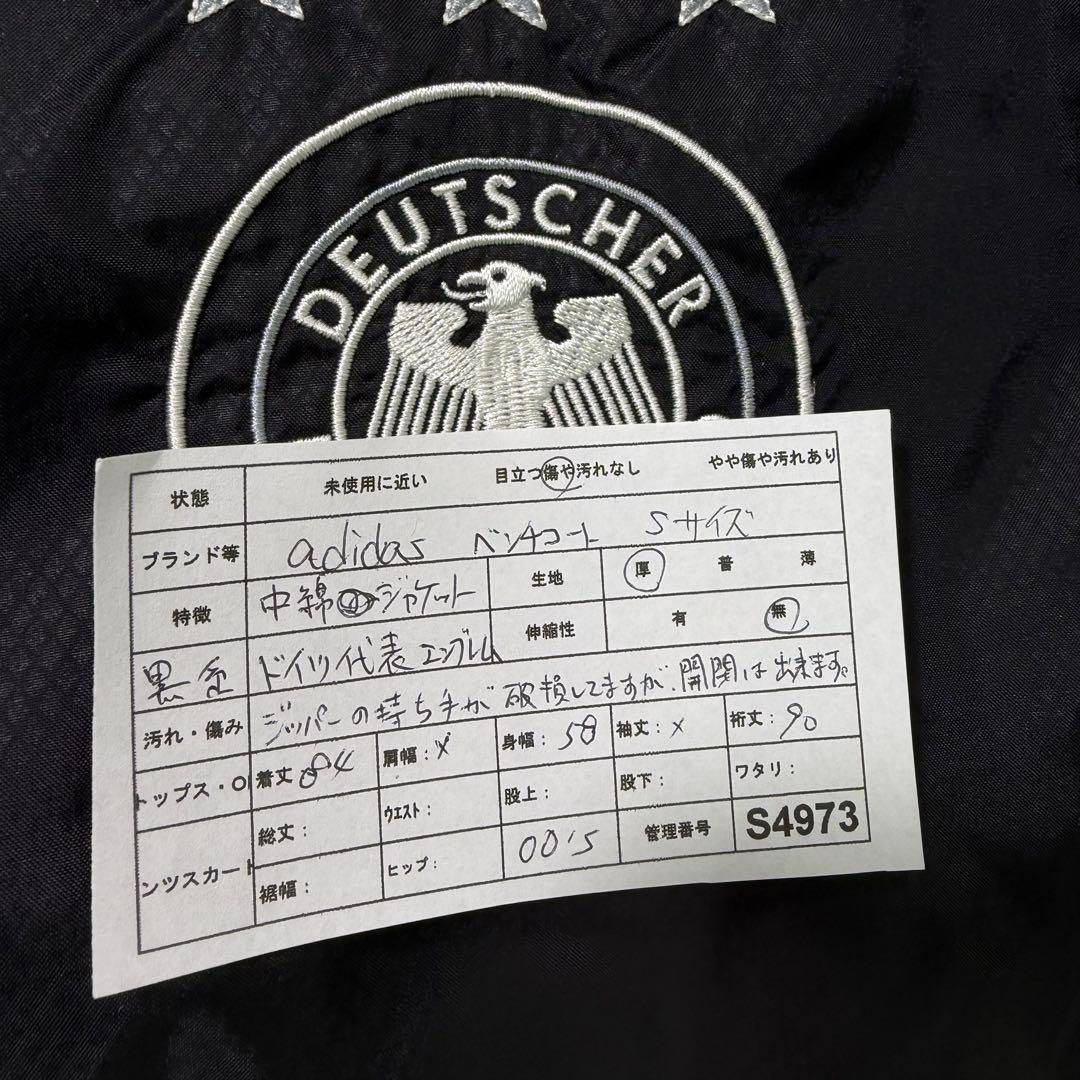 DEUTSCHER
状態 未使用に近い 目立つ傷や汚れなし やや傷や汚れあり
ブランド等 adidas ベンチコート Sサイズ
特徴 中綿 ジャケット 生地 厚 普 薄
黒色 ドイツ代表エンブレム 伸縮性 有 無
汚れ・傷み ジッパーの持ち手が破損してますが、開閉は出来ます。
トップス・O 着丈:84 肩幅:X 身幅:58 袖丈:X 裄丈:90
ンツスカート 総丈: ウエスト: 股上: 股下: ワタリ:
裾幅: ヒップ: 00's 管理番号 S4973